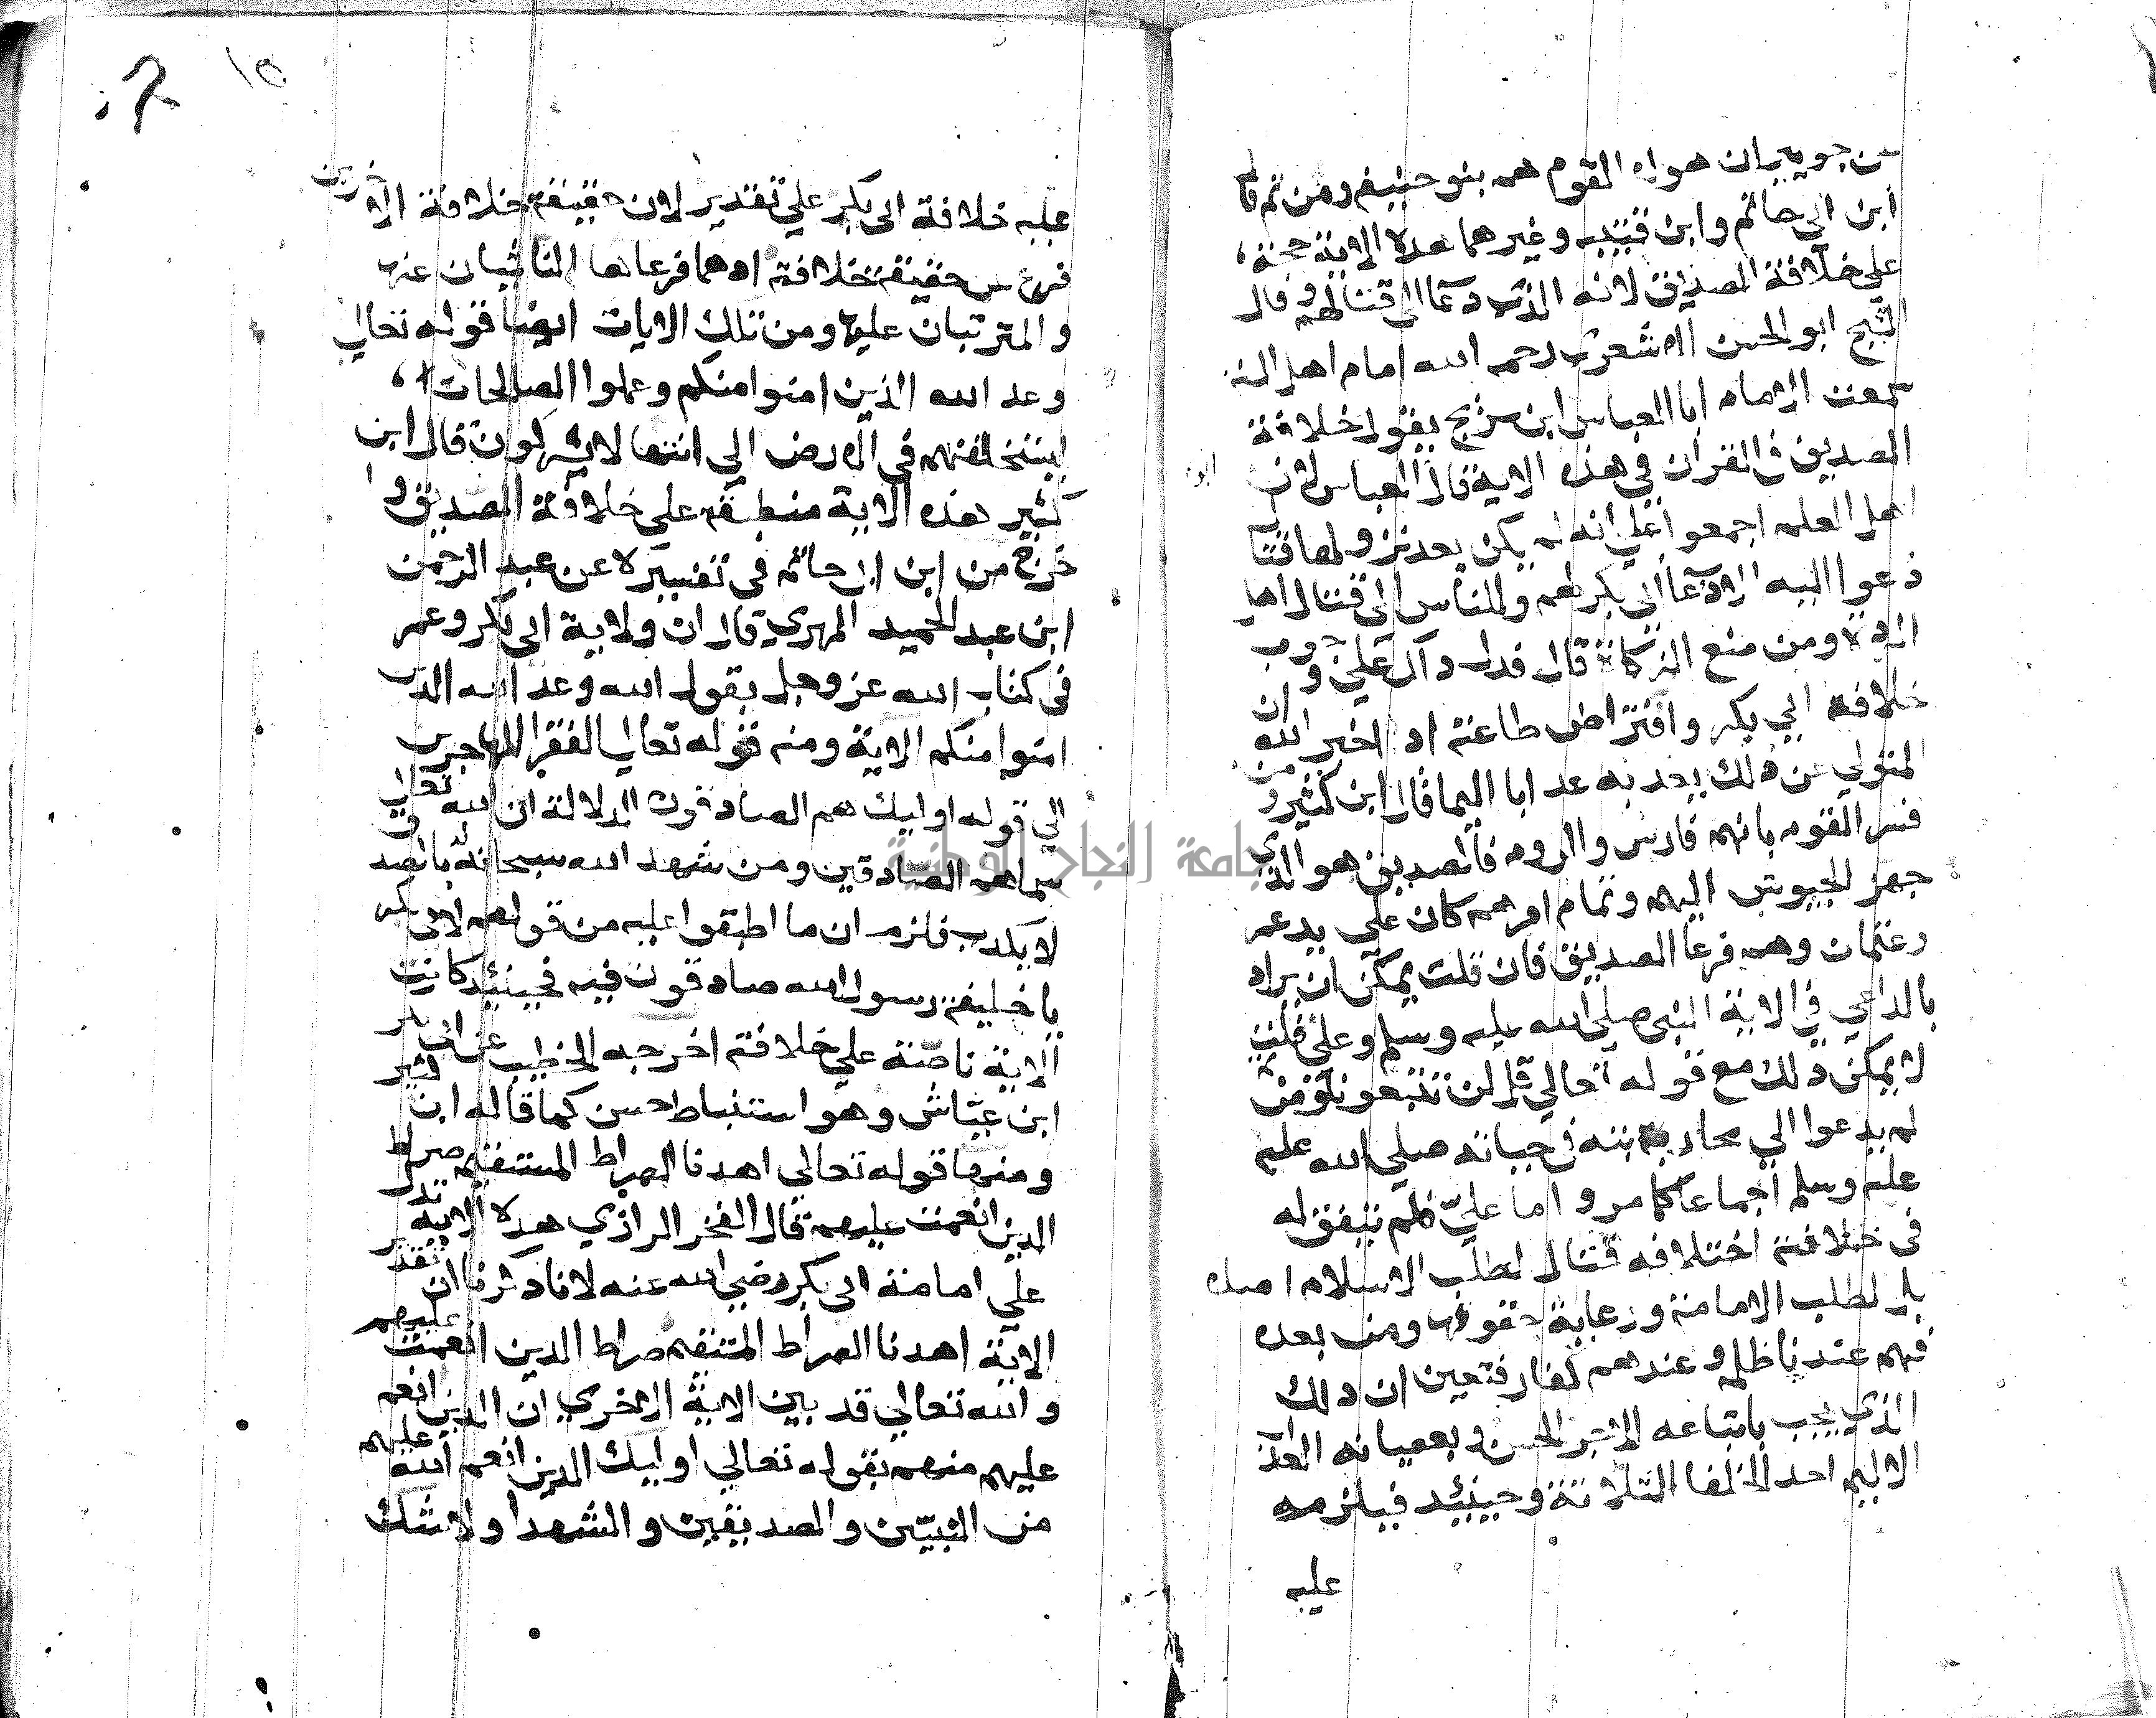 عن جويبر ان هولاء القوم هم بنو حنيفه ومن ثم قال
ابن ابي حاتم وابن قتيبه وغيرهما هذه الاية حجة
علي خلافة الصديق لانه الذي دعا الي قتالهم وقال
الشيخ ابو الحسن الاشعري رحمه الله امام اهل السنه
سمعت الامام ابا العباس ابن سريج يقول خلافة
الصديق في القران في هذه الاية قال ابو العباس لان
اهل العلم اجمعوا علي انه لم يكن بعد نزولها قتال
دعوا اليه الا دعا ابي بكر لهم وللناس الي قتال اهل
الرده ومن منع الزكاة قال فدل ذلك علي وجوب
خلافة ابي بكر وافتراض طاعته اذ اخبر الله ان
المتولي عن ذلك يعذبه عذابا اليما قال ابن كثير ومن
فسر القوم بانهم فارس والروم فالصديق هو الذي
جهز الجيوش اليهم وتمام امرهم كان علي يد عمر
وعثمان وهم فرعا الصديق فان قلت يمكن ان يراد
بالداعي في الاية النبي صلي الله عليه وسلم وعلي قلت
لا يمكن ذلك مع قوله تعالي قل لن تتبعونا ومن ثم
لم يدعوا الي محاربته في حياته صلي الله عليه
عليه وسلم اجماعا كما مر واما علي فلم يتفق له
في خلافته اختلافه قتال لطلب الاسلام اصلا
بل لطلب الامامة ورعاية حقوقها ومن بعده
فهم عندنا ظلمه وعندهم كفار فتعين ان ذلك
الذي يجب باتباعه الاجر الحسن وبعصيانه العذاب
الاليم احد الخلفا الثلاثة وحينئذ فيلزم
عليه
١٥
عليه خلافة ابي بكر علي تقدير لان حقيقة خلافة الاخرين
فرع عن حقيقة خلافته اذ هما فرعاها الناشيان عنها
والمترتبان عليها ومن تلك الايات ايضا قوله تعالي
وعد الله الذين امنوا منكم وعملوا الصالحات
ليستخلفنهم في الارض الي انتها لا يشركون قال ابن
كثير هذه الاية منطبقه علي خلافة الصديق و
خرج من ابن ابي حاتم في تفسيره عن عبد الرحمن
ابن عبد الحميد المهري قال ان ولاية ابي بكر وعمر
في كتاب الله عز وجل يقول الله وعد الله الذين
امنوا منكم الاية ومنه قوله تعالي للفقرا المهاجرين
الي قوله اوليك هم الصادقون الدلالة ان الله تعالي
سماهم الصادقين ومن شهد الله سبحانه بالصدق
لا يكذب فلزم ان ما اطبقوا عليه من قولهم لابي بكر
يا خليفة رسول الله صادقون فيه فحينئذ كانت
الاية ناصة علي خلافته اخرجه الخطيب عن ابي بكر
ابن عياش وهو استنباط حسن كما قاله ابن كثير
ومنها قوله تعالي اهدنا الصراط المستقيم صراط
الذين انعمت عليهم قال الفخر الرازي هذه الاية تدل
علي امامة ابي بكر رضي الله عنه لانا ذكرنا ان تقدير
الاية اهدنا الصراط المستقيم صراط الذين انعمت عليهم
والله تعالي قد بين الاية الاخري ان الذين انعم
عليهم منهم بقوله تعالي اوليك الذين انعم الله عليهم
من النبيين والصديقين والشهدا ولا شك
جامعة النجاح الوطنية